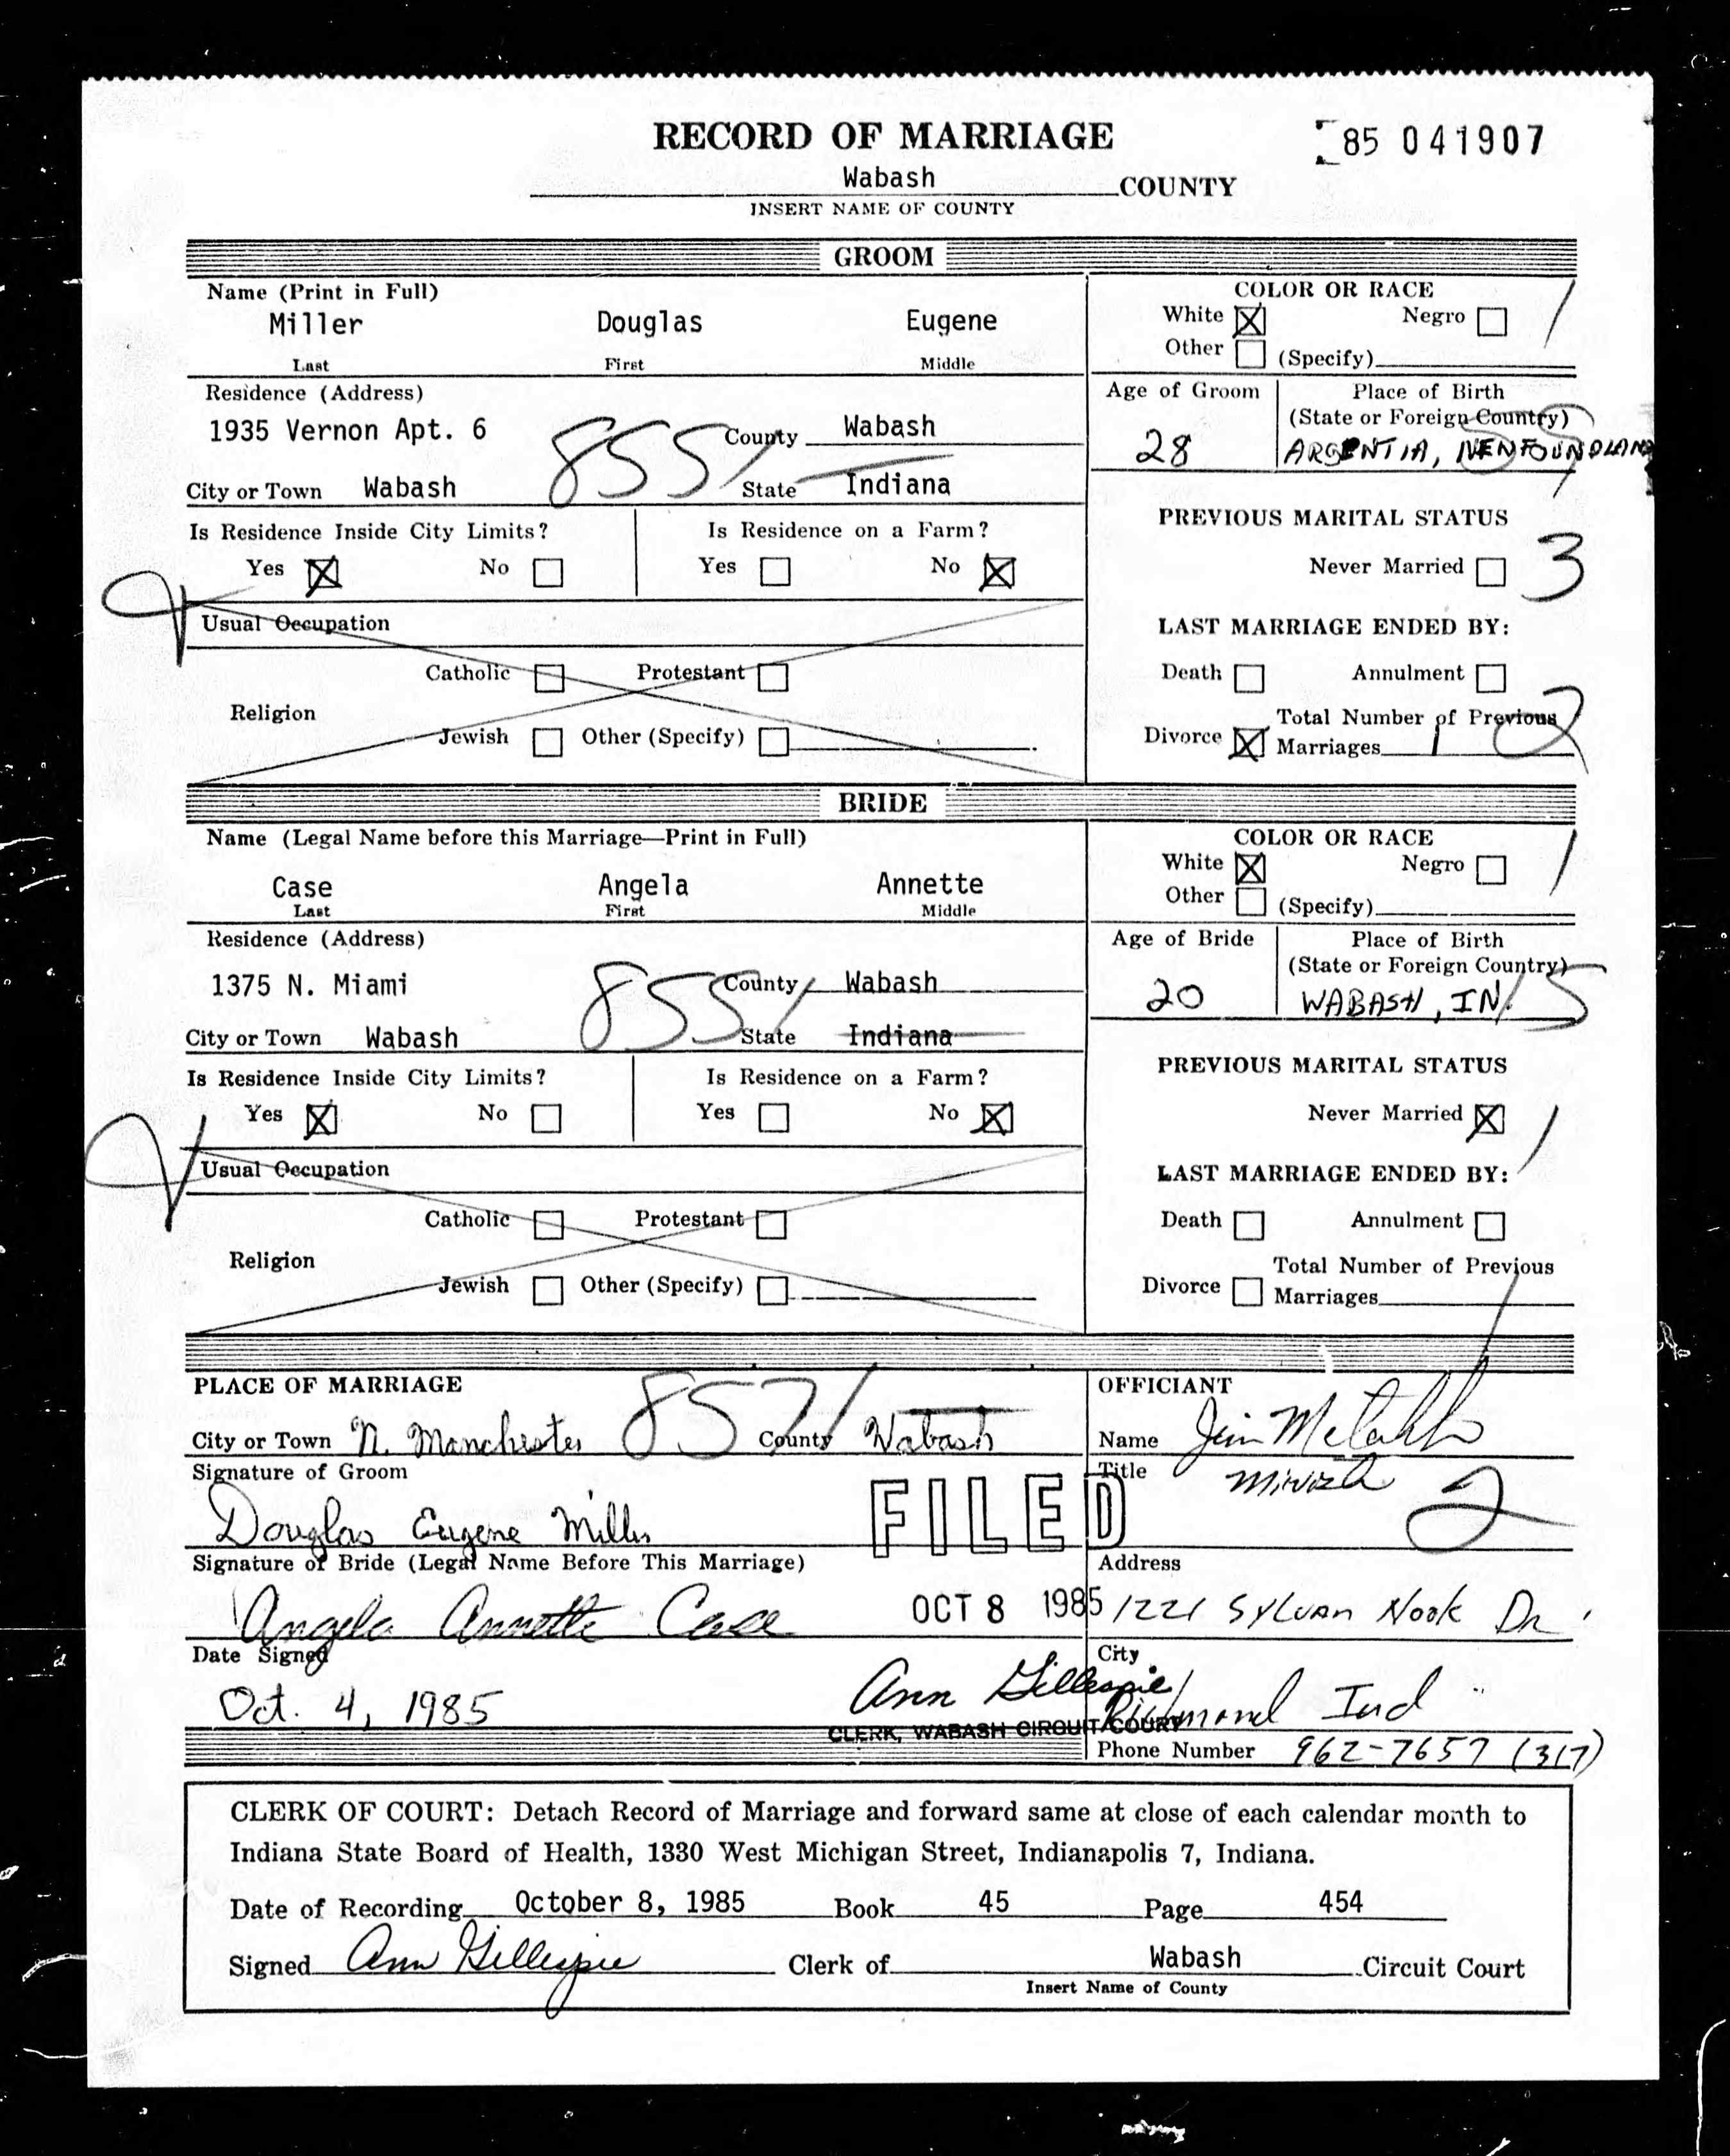 RECORD OF MARRIAGE
85 041907
Wabash COUNTY
INSERT NAME OF COUNTY
GROOM
Name (Print in Full)
Miller Douglas Eugene
Last First Middle
COLOR OR RACE
White Negro 1
Other (Specify)
Residence (Address)
1935 Vernon Apt. 6
County Wabash
855
City or Town Wabash
State Indiana
Age of Groom
28
Place of Birth
(State or Foreign Country)
ARGENTIA, NEWFOUNDLAND
Is Residence Inside City Limits?
Yes No
Is Residence on a Farm?
Yes No
PREVIOUS MARITAL STATUS
Never Married 3
Usual Occupation
Religion
Catholic Protestant
Jewish Other (Specify)
LAST MARRIAGE ENDED BY:
Death Annulment
Divorce
Total Number of Previous
Marriages 1 2
BRIDE
Name (Legal Name before this Marriage—Print in Full)
Case Angela Annette
Last First Middle
COLOR OR RACE
White Negro 1
Other (Specify)
Residence (Address)
1375 N. Miami
County Wabash
855
City or Town Wabash
State Indiana
Age of Bride
20
Place of Birth
(State or Foreign Country)
WABASH, IN. 15
Is Residence Inside City Limits?
Yes No
Is Residence on a Farm?
Yes No
PREVIOUS MARITAL STATUS
Never Married 1
Usual Occupation
Religion
Catholic Protestant
Jewish Other (Specify)
LAST MARRIAGE ENDED BY:
Death Annulment
Divorce
Total Number of Previous
Marriages
PLACE OF MARRIAGE
City or Town N. Manchester 857 County Wabash
Signature of Groom
Douglas Eugene Miller
Signature of Bride (Legal Name Before This Marriage)
Angela Annette Case
Date Signed
Oct. 4, 1985
FILED
OCT 8 1985
Ann Gillespie
CLERK, WABASH CIRCUIT COURT
OFFICIANT
Name Jim
Title 2
Address
1221 Sylvan Nook Dr
City
Richmond Ind
Phone Number 962-7657 (317)
CLERK OF COURT: Detach Record of Marriage and forward same at close of each calendar month to
Indiana State Board of Health, 1330 West Michigan Street, Indianapolis 7, Indiana.
Date of Recording October 8, 1985 Book 45 Page 454
Signed Ann Gillespie Clerk of Wabash Circuit Court
Insert Name of County